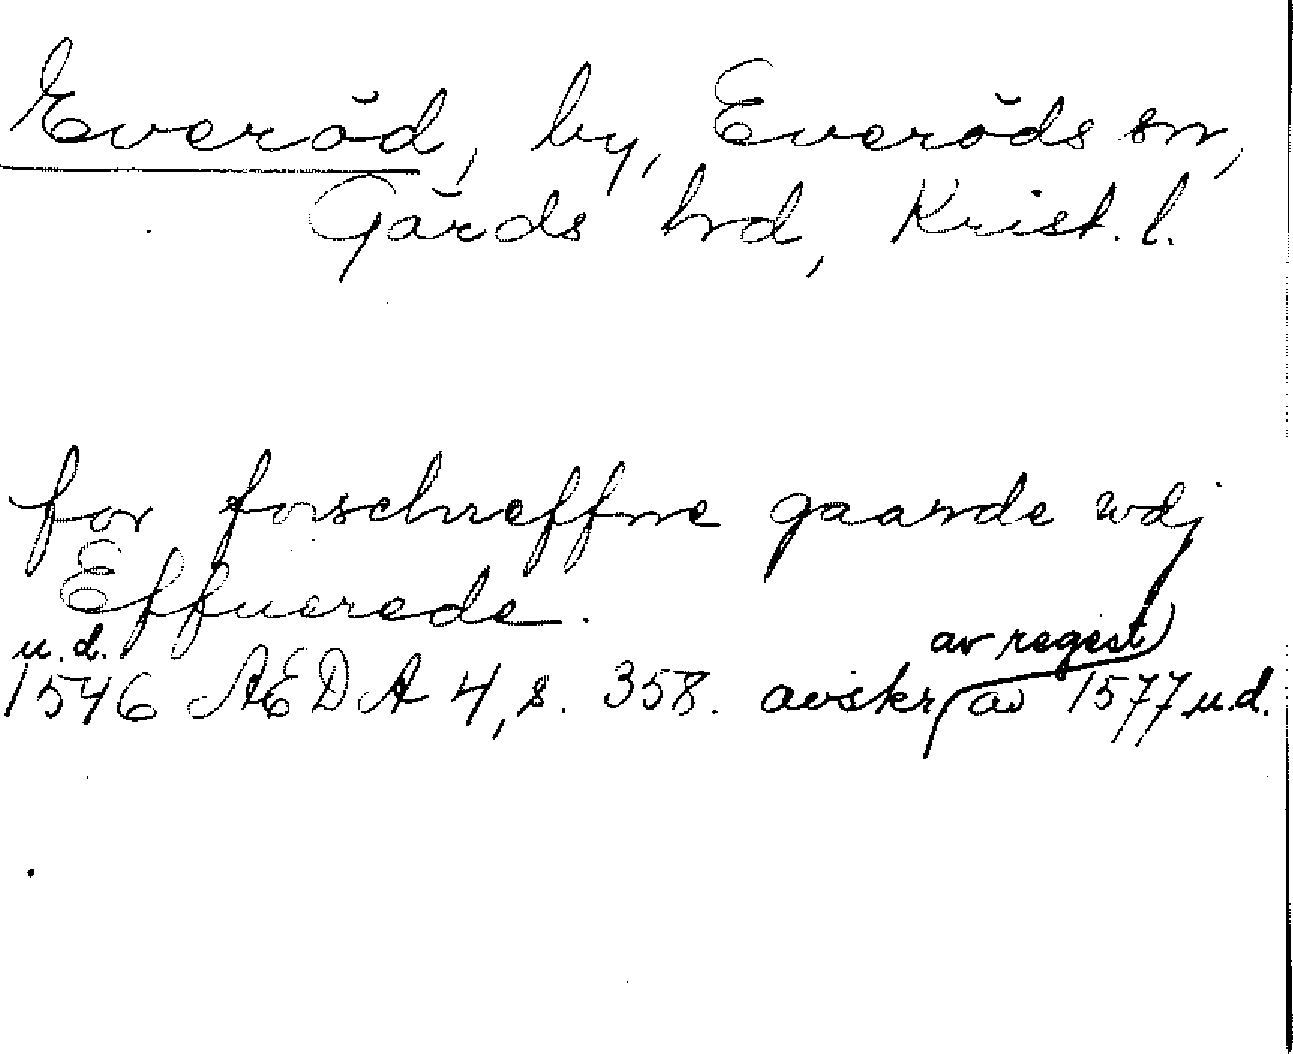 Everöd, by, Everöds sn,
Gärds hrd, Krist. l.
for forschreffne gaarde wdj
Effuerede.
u.d. av regest
1546 AEDA 4, s. 358. avskr av 1577 u.d.